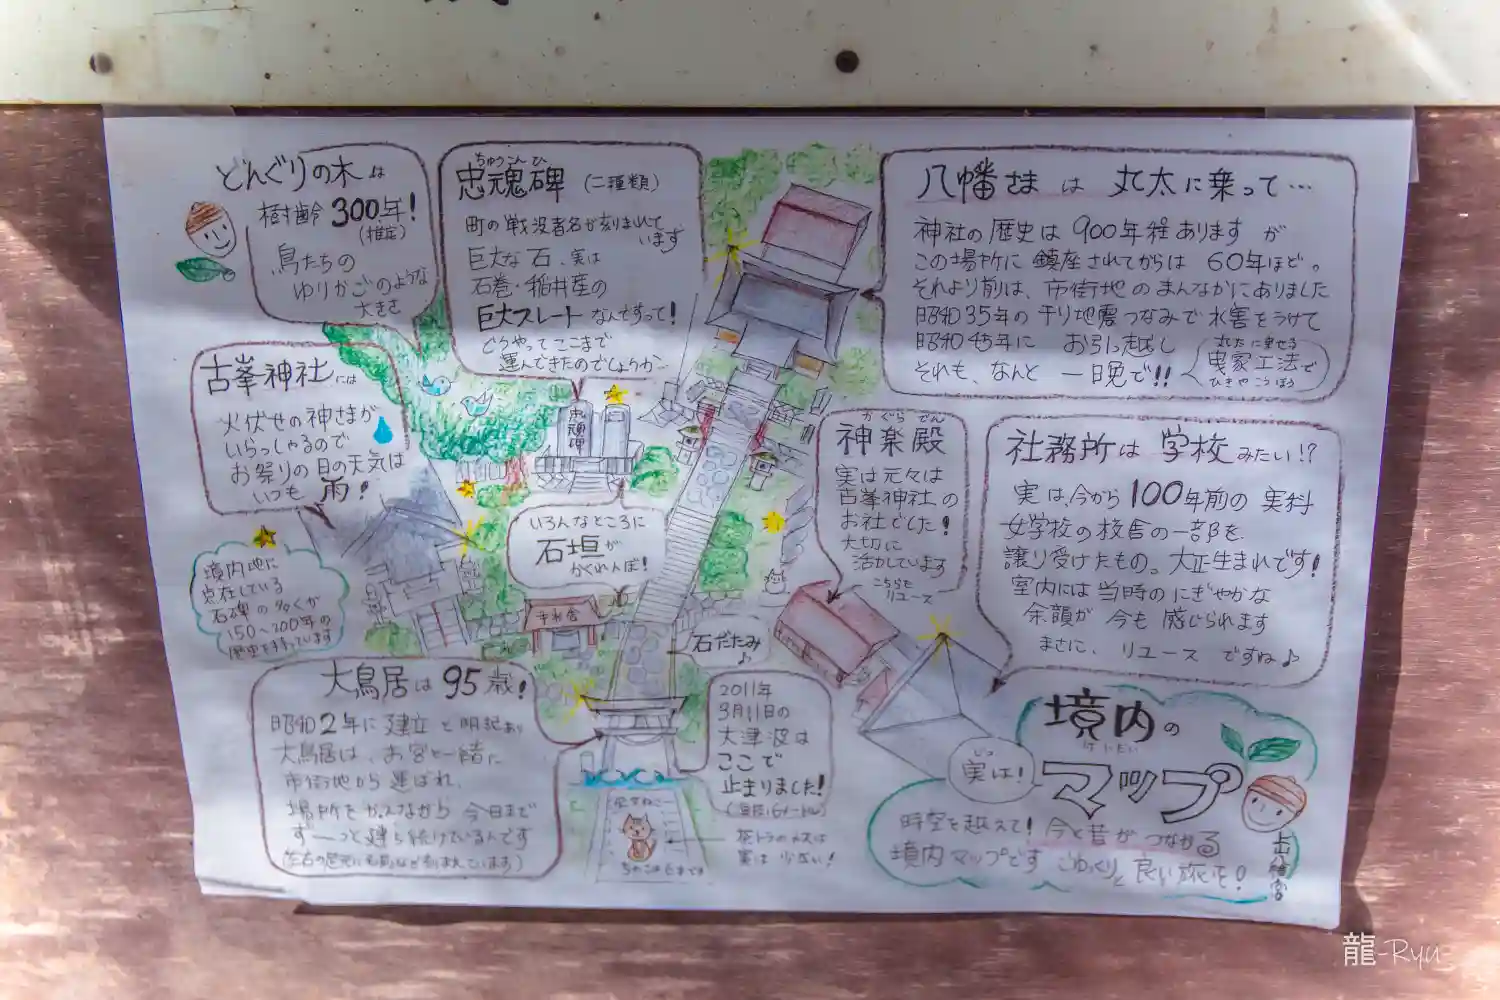 どんぐりの木は
樹齢300年!
(推定)
鳥たちの
ゆりかごのような
大きさ
ちゅうこんひ
忠魂碑(二種類)
町の戦没者名が刻まれて
います
巨大な石、実は
石巻・稲井産の
巨大スレートなんですって!
どうやってここまで
運んできたのでしょうか
八幡さまは丸太に乗って…
神社の歴史は900年程ありますが
この場所に鎮座されてからは60年ほど。
それより前は、市街地のまんなかにありました
昭和35年のチリ地震つなみで水害をうけて
昭和45年にお引っ越し
それも、なんと一晩で!!
丸太に乗せる
曳家工法で
ひきやこうほう
古峯神社には
火伏せの神さまが
いらっしゃるので
お祭りの日の天気は
いつも雨!
忠魂碑
かぐらでん
神楽殿
実は元々は
古峯神社の
お社でした!
大切に
活かしています
こちらも
リユース
社務所は学校みたい!?
実は、今から100年前の実科
女学校の校舎の一部を
譲り受けたもの。大正生まれです!
室内には当時のにぎやかな
余韻が今も感じられます
まさに、リユースですね♪
いろんなところに
石垣が
かくれんぼ!
境内地に
点在している
石碑の多くが
150~200年の
歴史を持っています
手水舎
石だたみ
♪
大鳥居は95歳!
昭和2年に建立と明記あり
大鳥居は、お宮と一緒に
市街地から運ばれ、
場所をかえながら今日まで
ず――っと建ち続けているんです
2011年
3月11日の
大津波は
ここで
止まりました!
茶トラのメスは
実は少ない!
じつ
実は!
境内の
けいだい
マップ
時空を越えて!今と昔がつながる
境内マップですごゆっくりと良い旅を!
上山八幡宮
龍-Ryu-